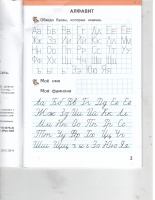 АЛФАВИТ
Обведи буквы, которые знаешь.
Аа Бб Вв Гг Дд Ее Ёё
Жж Зз Ии Йй Кк Лл
Мм Нн Оо Пп Рр Сс
Тт Уу Фф Хх Цц Чч
Шш Щщ
ъ ы ь Ээ Юю Яя
Моё имя
Моя фамилия
Аа Бб Вв Гг Дд Ее Ёё
Жж Зз Ии Йй Кк Лл
Мм Нн Оо Пп Рр Сс
Тт Уу Фф Хх Цц Чч
Шш Щщ ъ ы ь Ээ Юю Яя
3